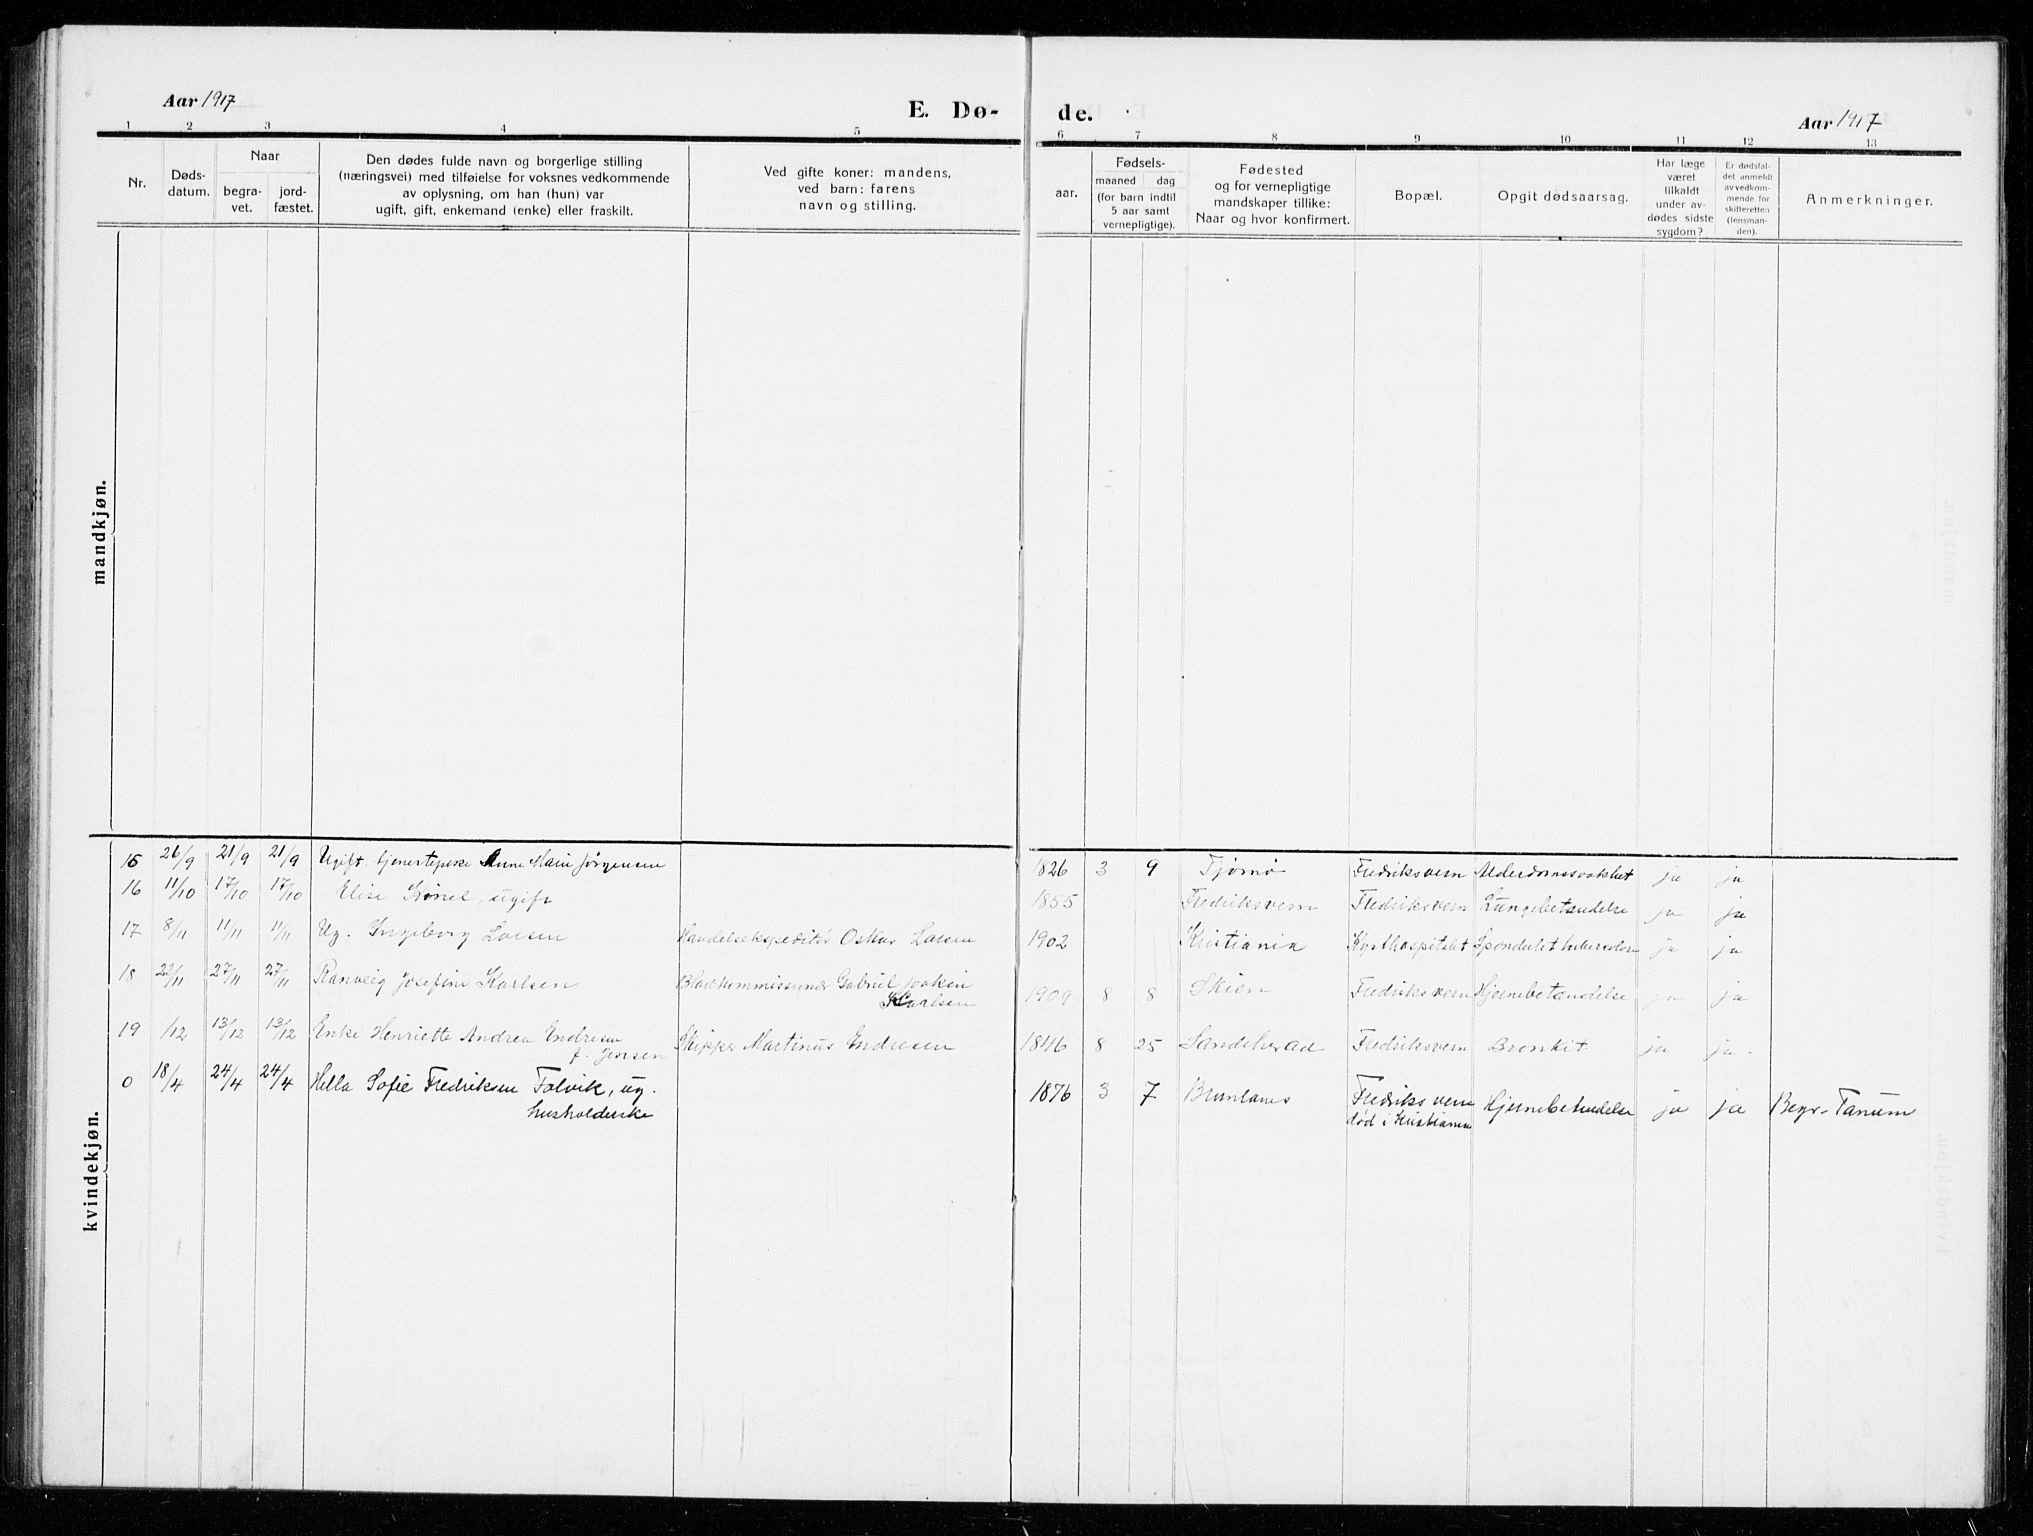 Aar 1917
E. Dø-
de.
Aar 1917
1 2 3 4 5
6 7 8 9 10 11 12 13
Nr.
Døds-
datum.
Naar
begra-
vet.
jord-
fæstet.
Den dødes fulde navn og borgerlige stilling
(næringsvei) med tilføielse for voksnes vedkommende
av oplysning, om han (hun) var
ugift, gift, enkemand (enke) eller fraskilt.
Ved gifte koner: mandens,
ved barn: farens
navn og stilling.
aar.
Fødsels-
maaned dag
(for barn indtil
5 aar samt
vernepligtige).
Fødested
og for vernepligtige
mandskaper tillike:
Naar og hvor konfirmert.
Bopæl.
Opgit dødsaarsag.
Har læge
været
tilkaldt
under av-
dødes sidste
sygdom?
Er dødsfal-
det anmeldt
av vedkom-
mende for
skifteretten
(lensman-
den).
Anmerkninger.
mandkjøn.
kvindekjøn.
15 26/9 21/9 21/9 Ugift, Anne Marie Jørgensen 1826 3 9 Tjømø Fredriksvern Alderdomssvakhet ja ja
16 11/10 17/10 17/10 Elise ugift 1855 Fredriksvern Fredriksvern Lungebetændelse ja ja
17 8/11 11/11 11/11 Ug. Ingeborg Larsen Handelsekspeditør Oskar Larsen 1902 Kristiania Kysthospitalet ja ja
18 22/11 27/11 27/11 Ranveig Josefine Karlsen Bladkommissionær Gabriel Joakim
Karlsen 1909 8 8 Skien Fredriksvern Hjernebetændelse ja ja
19 /12 13/12 13/12 Enke Henriette Andrea Endresen
f. Jensen Skipper Martinus Endresen 1846 8 25 Sandeherad Fredriksvern Bronkit ja ja
0 18/4 24/4 24/4 Hella Sofie Fredriksen Folvik, ug.
husholderske 1876 3 7 Brunlanes Fredriksvern
død i Kristiania Hjernebetændelse ja ja Begr. Tanum